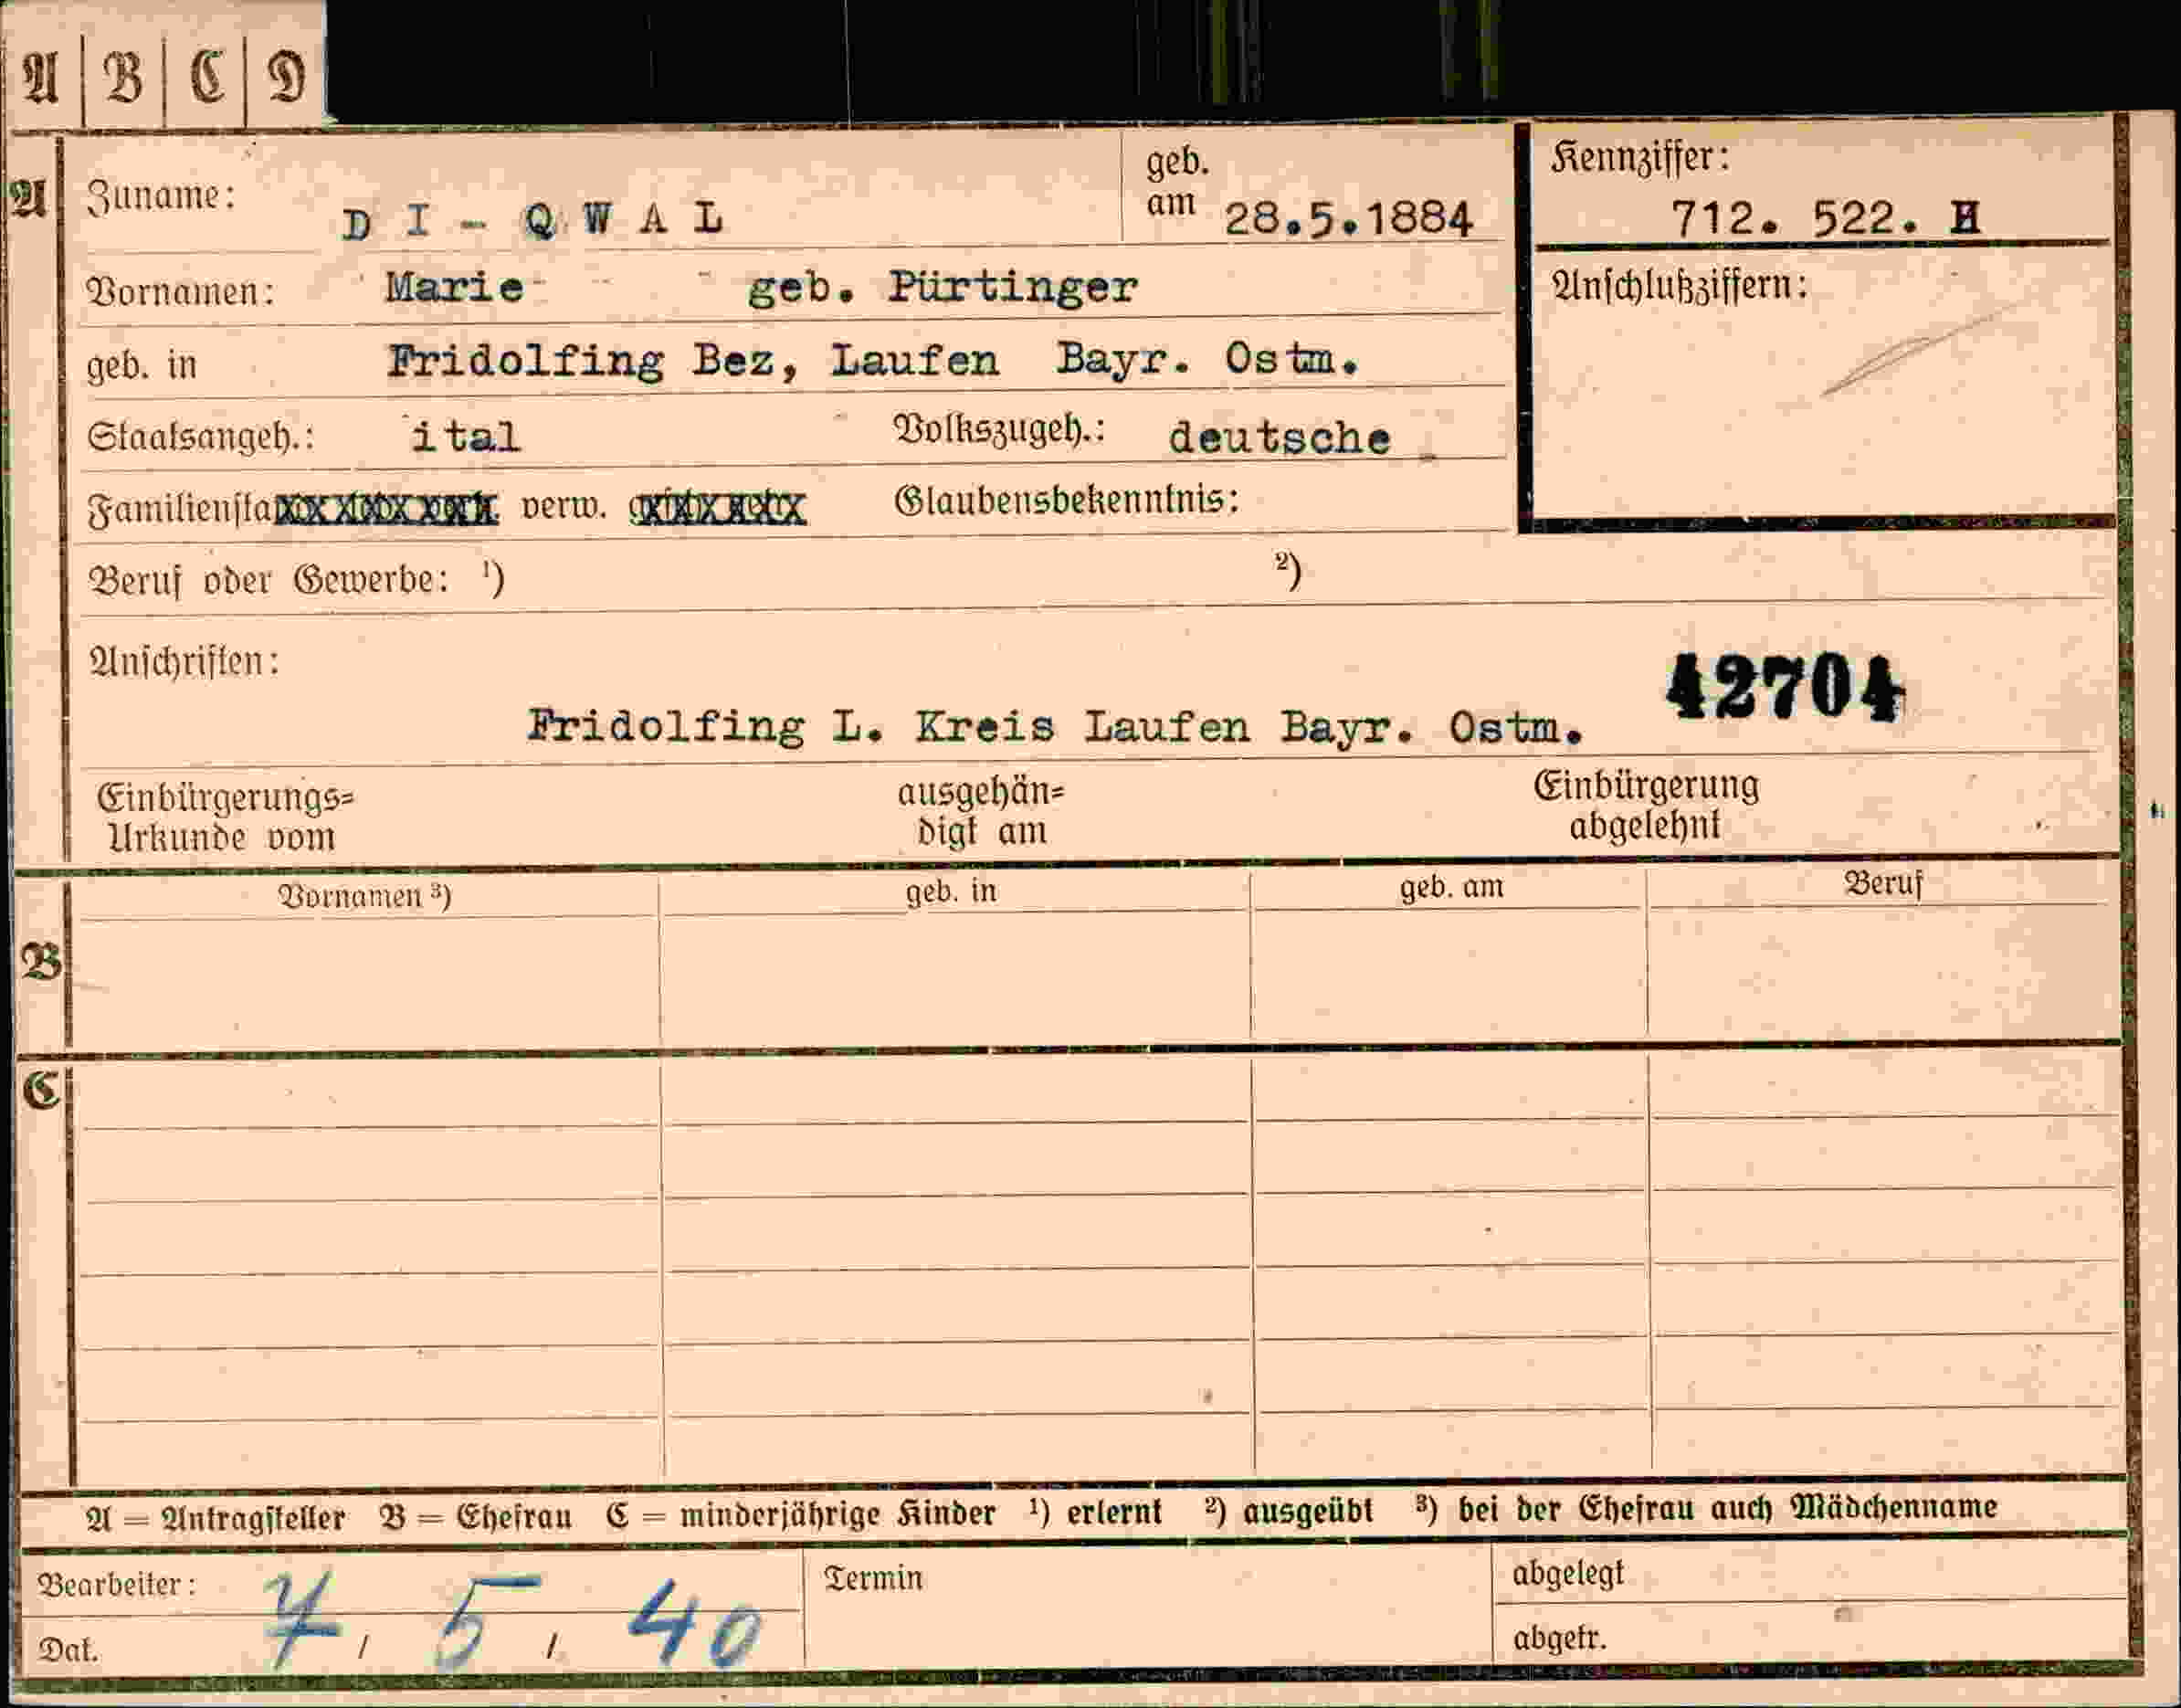 A | B | C | D
A
Zuname: DI-QWAL geb. am 28.5.1884 Kennziffer: 712. 522. H
Vornamen: Marie geb. Pürtinger Anschlußziffern:
geb. in Fridolfing Bez, Laufen Bayr. Ostm.
Staatsangeh.: ital Volkszugeh.: deutsche
Familiensta verw. Glaubensbekenntnis:
Beruf oder Gewerbe: ¹) ²)
Anschriften: 42704
Fridolfing L. Kreis Laufen Bayr. Ostm.
Einbürgerungs= ausgehän= Einbürgerung
Urkunde vom digt am abgelehnt
Vornamen ³) geb. in geb. am Beruf
B
C
A = Antragsteller B = Ehefrau C = minderjährige Kinder ¹) erlernt ²) ausgeübt ³) bei der Ehefrau auch Mädchenname
Bearbeiter: Termin abgelegt
Dat. 7 / 5 / 40 abgetr.